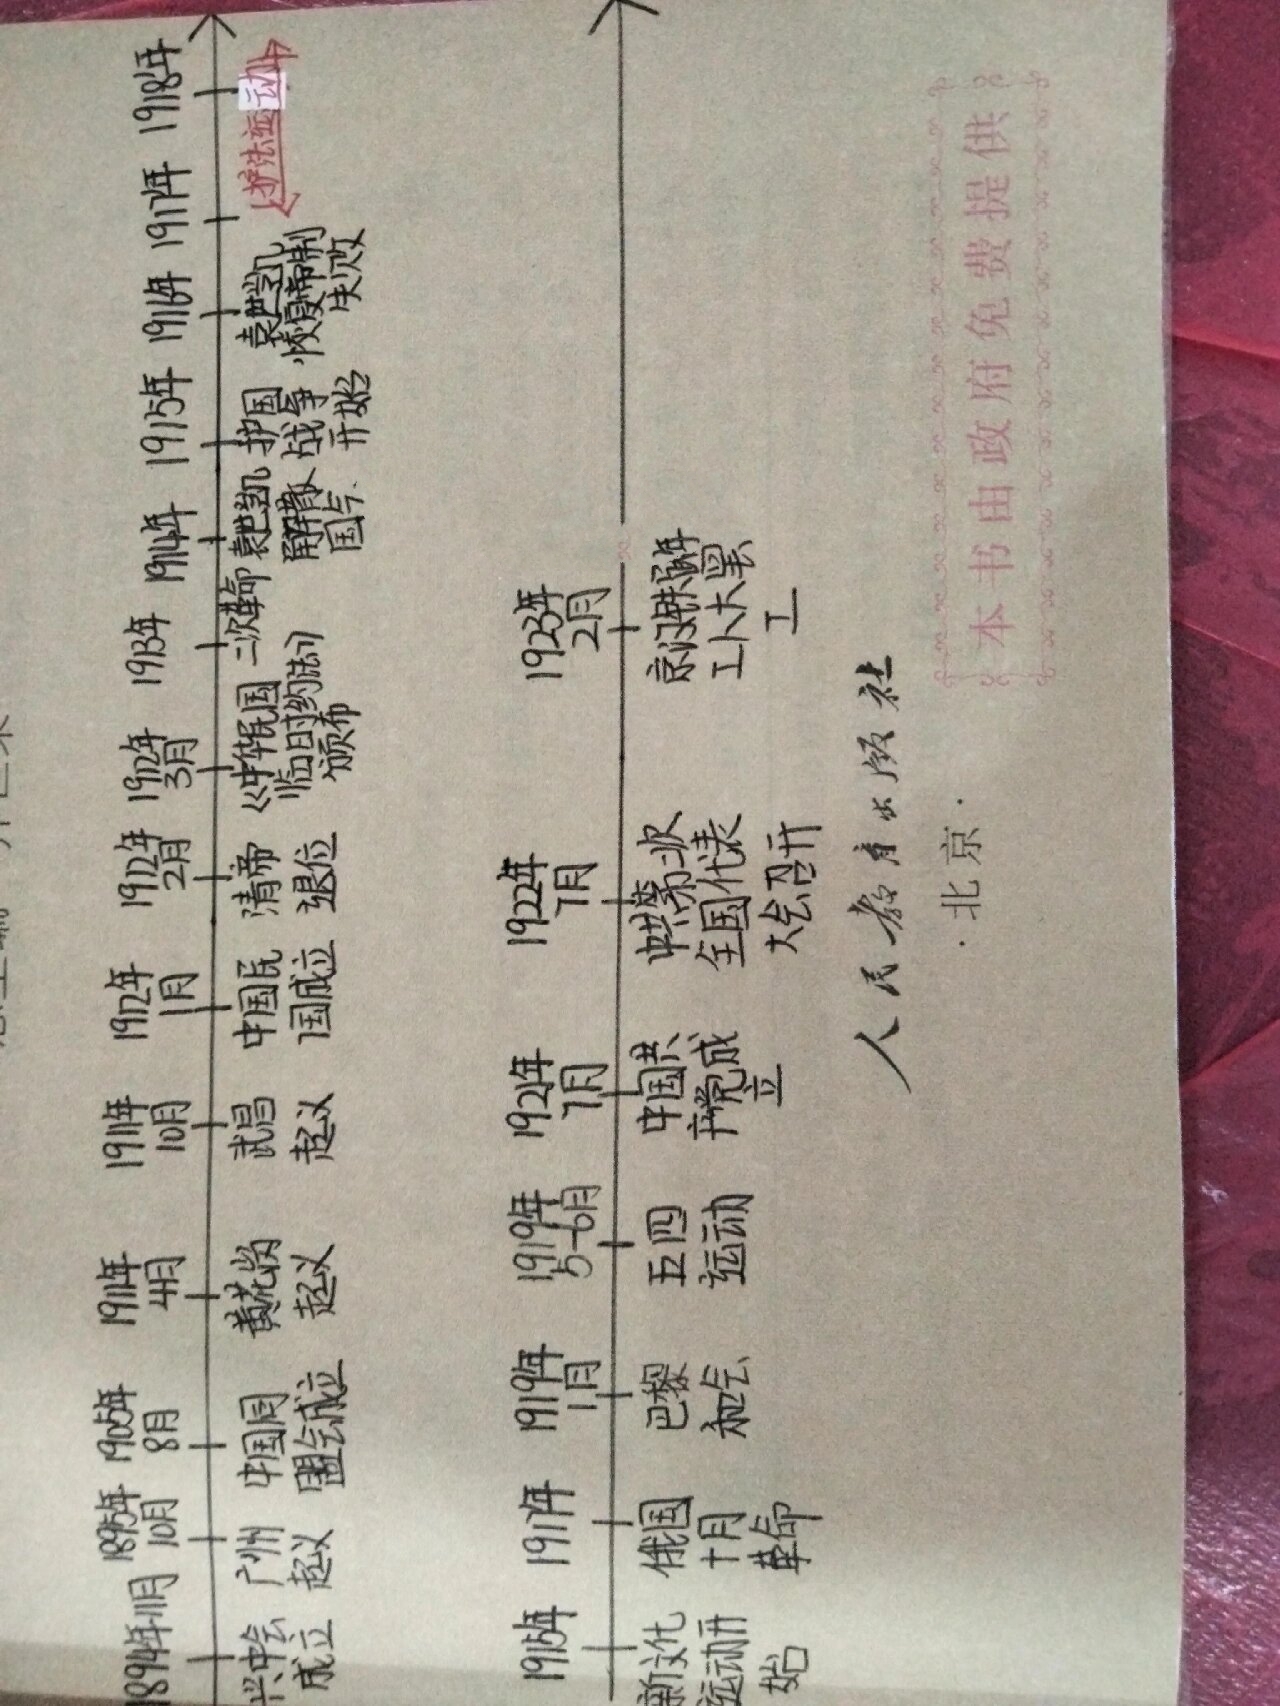 1894年11月
兴中会
成立
1895年
10月
广州
起义
1905年
8月
中国同
盟会成立
1911年
4月
黄花岗
起义
1911年
10月
武昌
起义
1912年
1月
中国民
国成立
1912年
2月
清帝
退位
1912年
3月
《中华民国
临时约法》
颁布
1913年
二次革命
1914年
袁世凯
解散
国会
1915年
护国
战争
开始
1916年
袁世凯
恢复帝制
失败
1917年
护法运动
1918年
1915年
新文化
运动开
始
1917年
俄国
十月
革命
1919年
1月
巴黎
和会
1919年
5-6月
五四
运动
1921年
7月
中国共
产党成
立
1922年
7月
中共第二次
全国代表
大会召开
1923年
2月
京汉铁路
工人大罢
工
人民教育出版社
·北京·
本书由政府免费提供